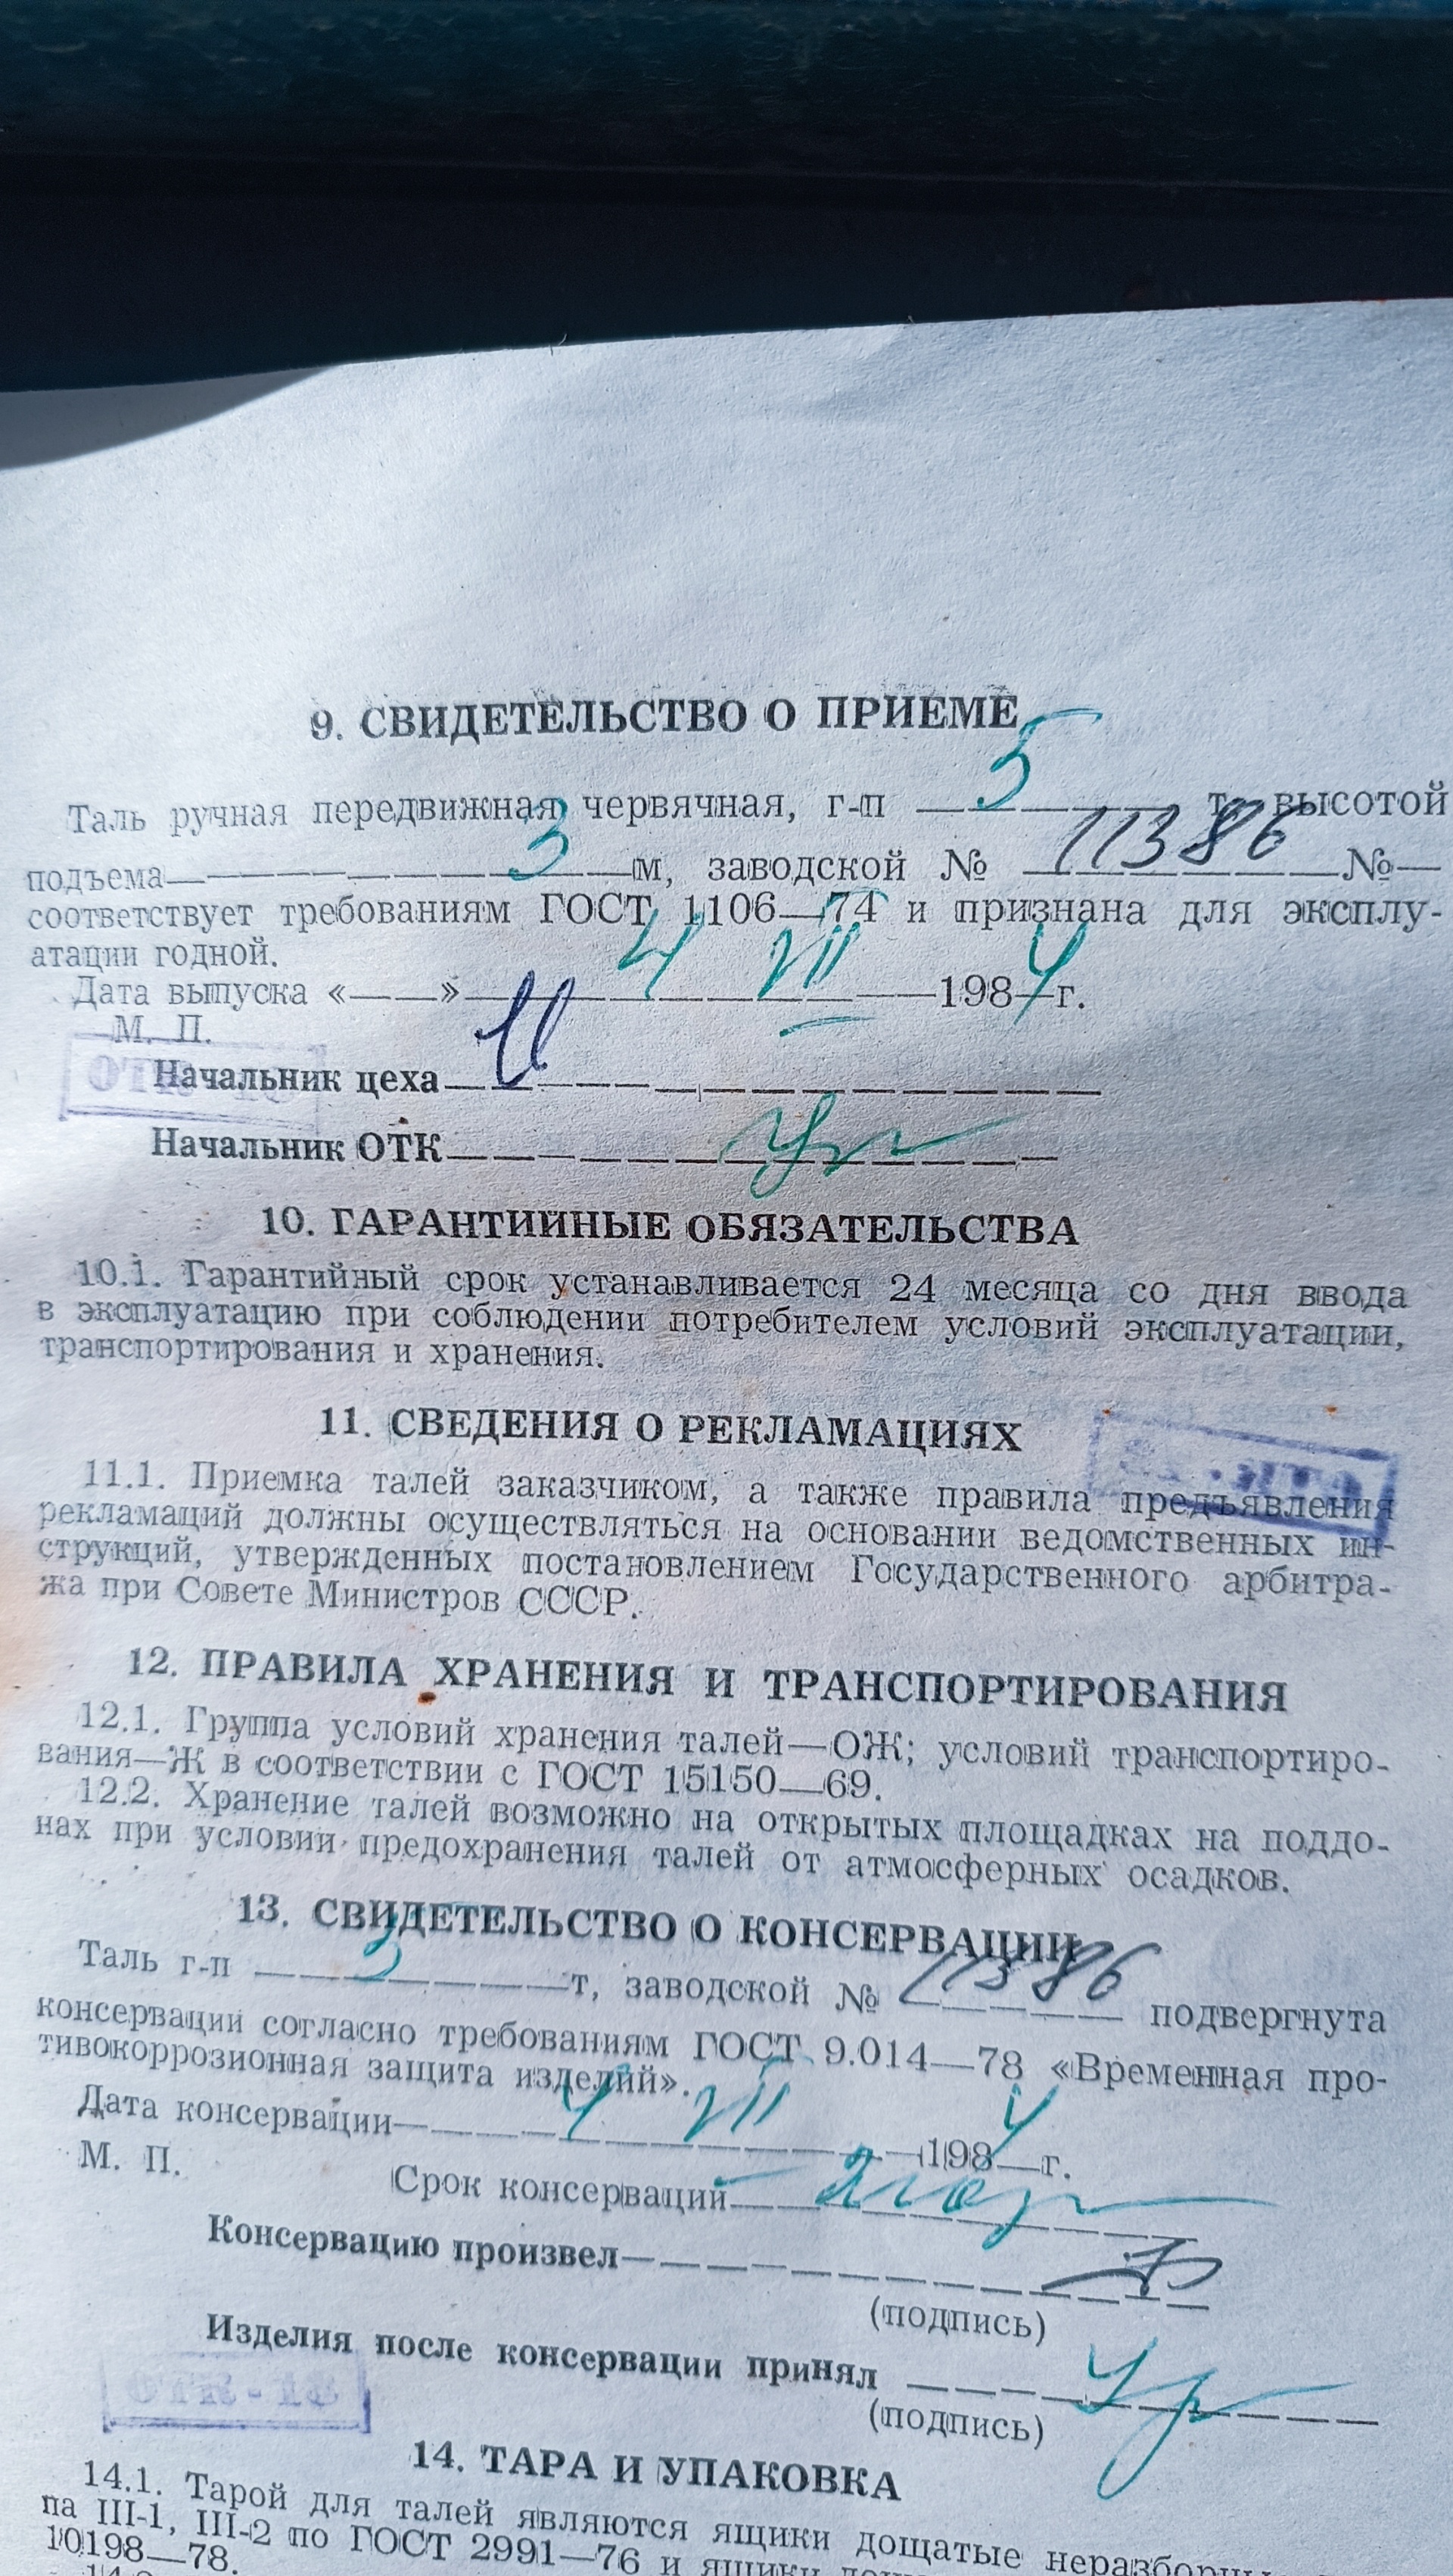 9. СВИДЕТЕЛЬСТВО О ПРИЕМЕ
Таль ручная передвижная червячная, г-п 5 т, высотой
подъема 3 м, заводской № 11386 №—
соответствует требованиям ГОСТ 1106—74 и признана для эксплу-
атации годной.
Дата выпуска «——» 4 VII 1984 г.
М. П.
Начальник цеха
Начальник ОТК
10. ГАРАНТИЙНЫЕ ОБЯЗАТЕЛЬСТВА
10.1. Гарантийный срок устанавливается 24 месяца со дня ввода
в эксплуатацию при соблюдении потребителем условий эксплуатации,
транспортирования и хранения.
11. СВЕДЕНИЯ О РЕКЛАМАЦИЯХ
11.1. Приемка талей заказчиком, а также правила предъявления
рекламаций должны осуществляться на основании ведомственных ин-
струкций, утвержденных постановлением Государственного арбитра-
жа при Совете Министров СССР.
12. ПРАВИЛА ХРАНЕНИЯ И ТРАНСПОРТИРОВАНИЯ
12.1. Группа условий хранения талей—ОЖ; условий транспортиро-
вания—Ж в соответствии с ГОСТ 15150—69.
12.2. Хранение талей возможно на открытых площадках на поддо-
нах при условии предохранения талей от атмосферных осадков.
13. СВИДЕТЕЛЬСТВО О КОНСЕРВАЦИИ
Таль г-п т, заводской № 11386 подвергнута
консервации согласно требованиям ГОСТ 9.014—78 «Временная про-
тивокоррозионная защита изделий».
Дата консервации 4 VII 1984 г.
М. П.
Срок консерваций 2 года
Консервацию произвел
(подпись)
Изделия после консервации принял
(подпись)
ОТК-18
14. ТАРА И УПАКОВКА
14.1. Тарой для талей являются ящики дощатые неразборны
па III-1, III-2 по ГОСТ 2991—76 и ящики
10198—78.